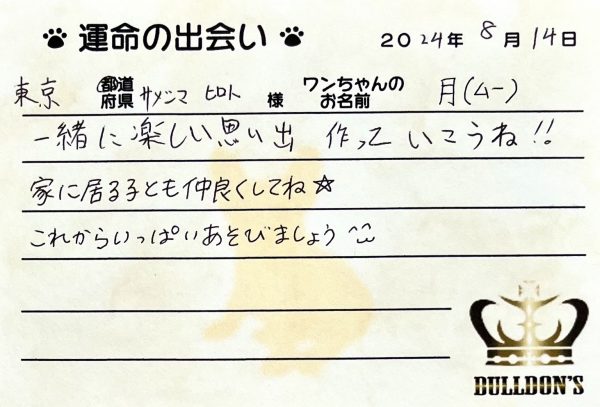 運命の出会い 2024年 8月 14日
東京 都道府県 サメジマ ヒロト 様 ワンちゃんのお名前 月(ムー)
一緒に楽しい思い出 作って いこうね!!
家に居る子とも仲良くしてね☆
これからいっぱいあそびましょう ^^
BULLDON'S